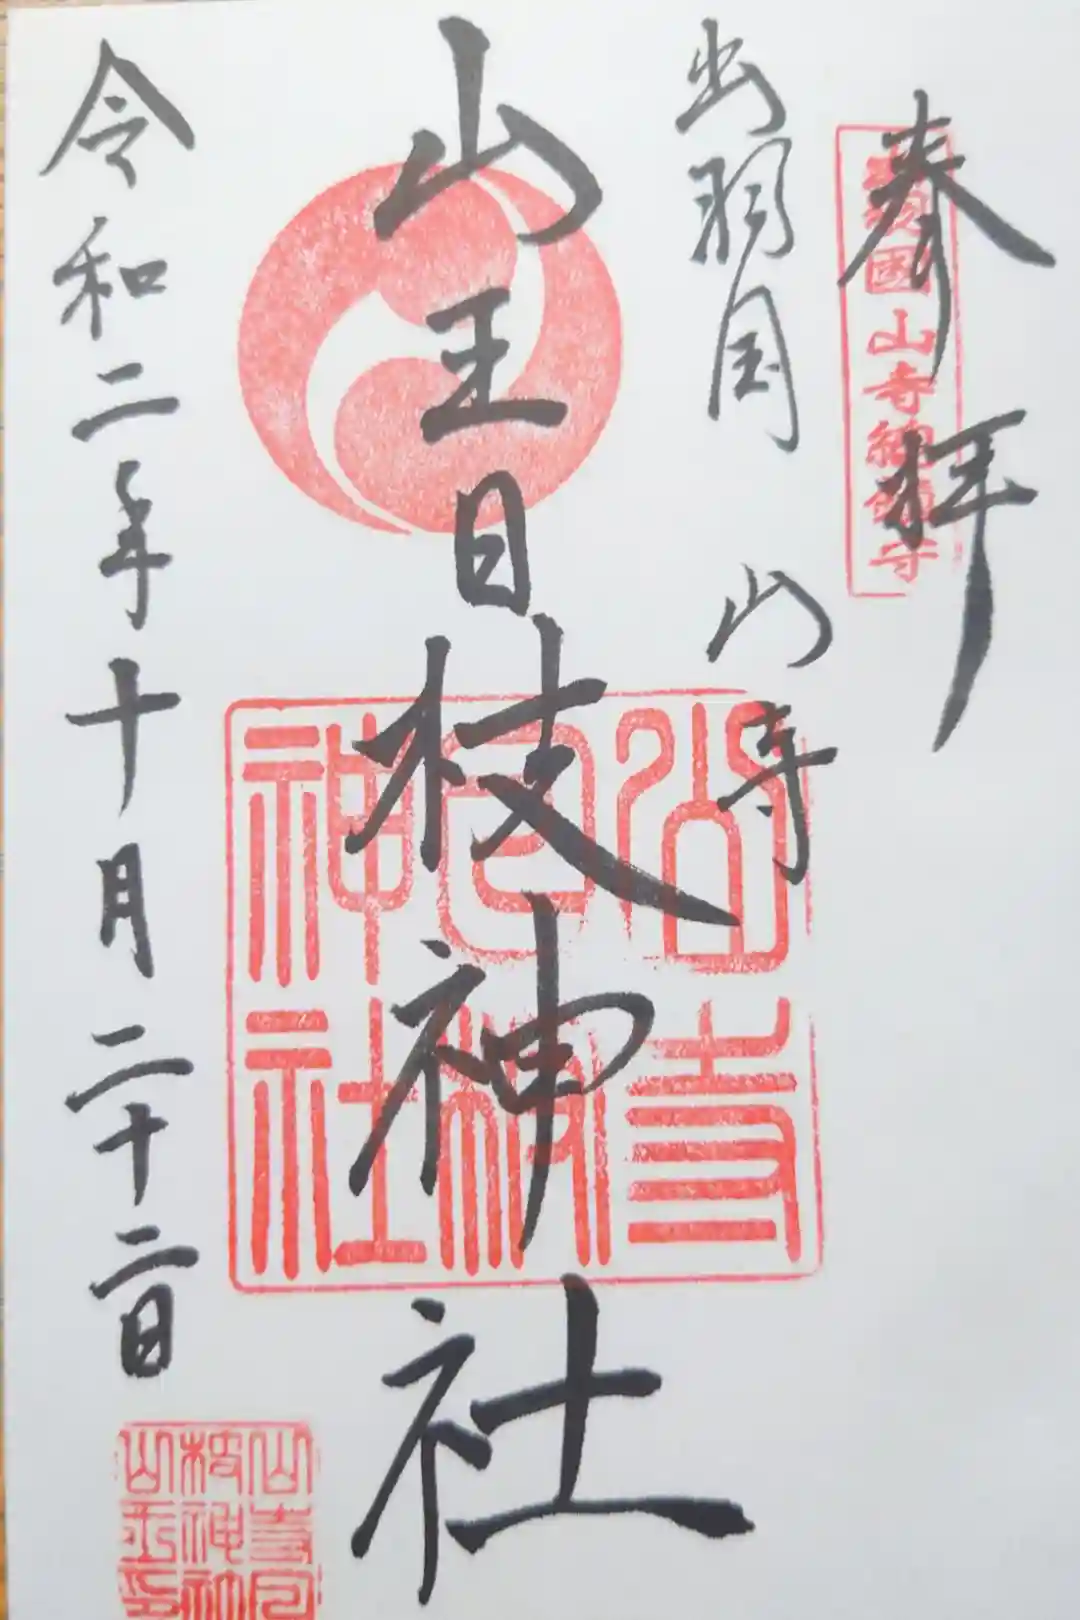 奉拝
山寺納經
出羽国 山寺
山王日枝神社
山寺日枝神社
令和二年十月二十二日
山寺日枝神社